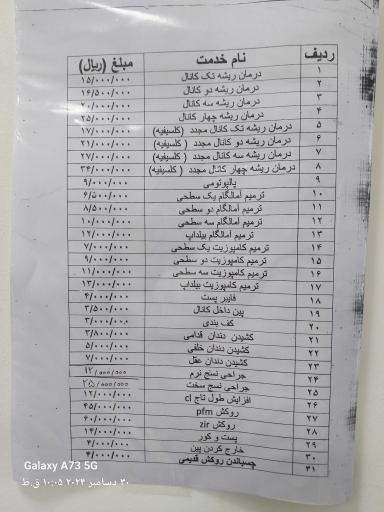 ردیف نام خدمت مبلغ (ریال)
۱ درمان ریشه تک کانال ۱۵/۰۰۰/۰۰۰
۲ درمان ریشه دو کانال ۱۶/۵۰۰/۰۰۰
۳ درمان ریشه سه کانال ۲۰/۰۰۰/۰۰۰
۴ درمان ریشه چهار کانال ۲۵/۰۰۰/۰۰۰
۵ درمان ریشه تک کانال مجدد (کلسیفیه) ۱۷/۰۰۰/۰۰۰
۶ درمان ریشه دو کانال مجدد (کلسیفیه) ۲۱/۰۰۰/۰۰۰
۷ درمان ریشه سه کانال مجدد (کلسیفیه) ۲۷/۰۰۰/۰۰۰
۸ درمان ریشه چهار کانال مجدد (کلسیفیه) ۳۴/۰۰۰/۰۰۰
۹ پالپوتومی ۹/۰۰۰/۰۰۰
۱۰ ترمیم آمالگام یک سطحی
۱۱ ترمیم آمالگام دو سطحی ۸/۵۰۰/۰۰۰
۱۲ ترمیم آمالگام سه سطحی ۱۰/۰۰۰/۰۰۰
۱۳ ترمیم آمالگام بیلداپ ۱۲/۰۰۰/۰۰۰
۱۴ ترمیم کامپوزیت یک سطحی ۷/۰۰۰/۰۰۰
۱۵ ترمیم کامپوزیت دو سطحی ۹/۰۰۰/۰۰۰
۱۶ ترمیم کامپوزیت سه سطحی ۱۱/۰۰۰/۰۰۰
۱۷ ترمیم کامپوزیت بیلداپ ۱۳/۰۰۰/۰۰۰
۱۸ فایبر پست ۴/۰۰۰/۰۰۰
۱۹ پین داخل کانال ۳/۵۰۰/۰۰۰
۲۰ کف بندی ۳/۰۰۰/۰۰۰
۲۱ کشیدن دندان قدامی ۳/۸۰۰/۰۰۰
۲۲ کشیدن دندان خلفی ۵/۰۰۰/۰۰۰
۲۳ کشیدن دندان عقل ۷/۰۰۰/۰۰۰
۲۴ جراحی نسج نرم ۱۲/۰۰۰/۰۰۰
۲۵ جراحی نسج سخت ۲۵/۰۰۰/۰۰۰
۲۶ افزایش طول تاج cl ۱۲/۰۰۰/۰۰۰
۲۷ روکش pfm ۴۵/۰۰۰/۰۰۰
۲۸ روکش zir ۶۰/۰۰۰/۰۰۰
۲۹ پست و کور ۱۴/۰۰۰/۰۰۰
۳۰ خارج کردن پین ۴/۰۰۰/۰۰۰
۳۱ چسباندن روکش قدیمی ۴/۰۰۰/۰۰۰
Galaxy A73 5G
۳۰ دسامبر ۲۰۲۴ ۱۰:۰۵ ق.ظ